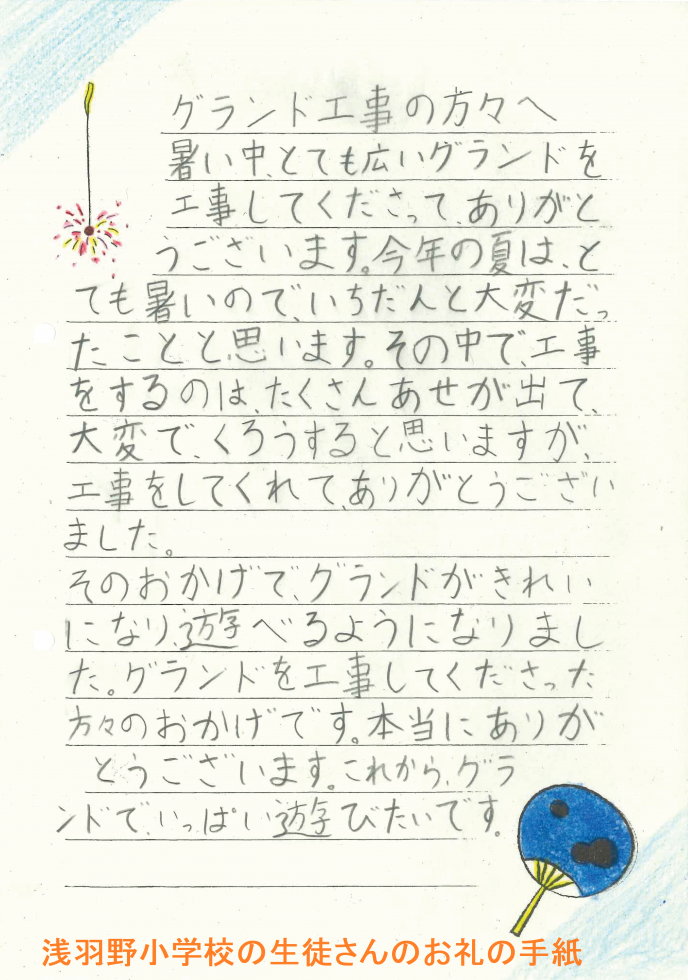 グランド工事の方々へ
暑い中、とても広いグランドを
工事してくださって、ありがと
うございます。今年の夏は、と
ても暑いので、いちだんと大変だっ
たことと思います。その中で、工事
をするのは、たくさんあせが出て、
大変で、くろうすると思いますが、
工事をしてくれて、ありがとうござい
ました。
そのおかげで、グランドがきれい
になり、遊べるようになりまし
た。グランドを工事してくださった
方々のおかげです。本当にありが
とうございます。これから、グラ
ンドで、いっぱい遊びたいです。
浅羽野小学校の生徒さんのお礼の手紙